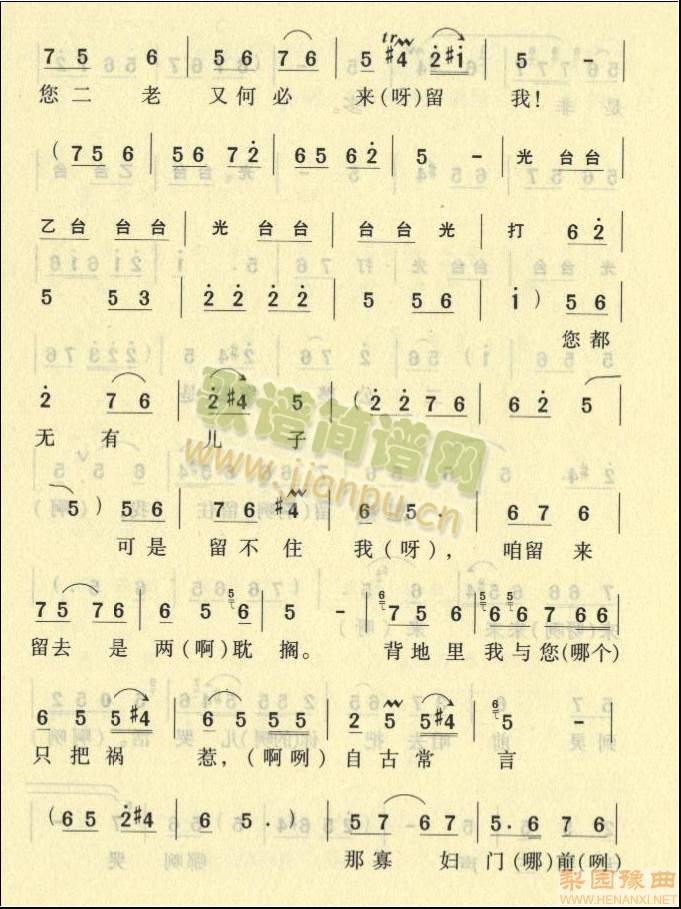 7 5 6 | 5 6 7 6 | 5 #4 2 #i | 5 - |
您二 老 又何必 来(呀)留 我!
( 7 5 6 | 5 6 7 2 | 6 5 6 2 | 5 - | 光 台台 |
乙台 台台 | 光 台台 | 台台 光 | 打 6 2 |
5 5 3 | 2 2 2 2 | 5 5 6 | i ) 5 6 |
您都
2 7 6 | 2 #4 5 | ( 2 2 7 6 | 6 2 5 |
无 有 儿 子
5 ) 5 6 | 7 6 #4 | 6 5. | 6 7 6 |
可是 留不住 我(呀), 咱留 来
7 5 7 6 | 6 5 6 | 5 - | 7 5 6 | 6 6 7 6 6 |
留去 是 两(啊)耽 搁。 背地里 我与您(哪个)
6 5 5 #4 | 6 5 5 5 | 2 5 5 #4 | 5 - |
只把祸 惹,(啊咧) 自古常 言
( 6 5 2 #4 | 6 5. ) | 5 7 6 7 | 5. 6 7 6 |
那寡 妇 门(哪)前(咧)
歌谱简谱网
www.jianpu.cn
梨园豫曲
WWW.HENANXI.NET